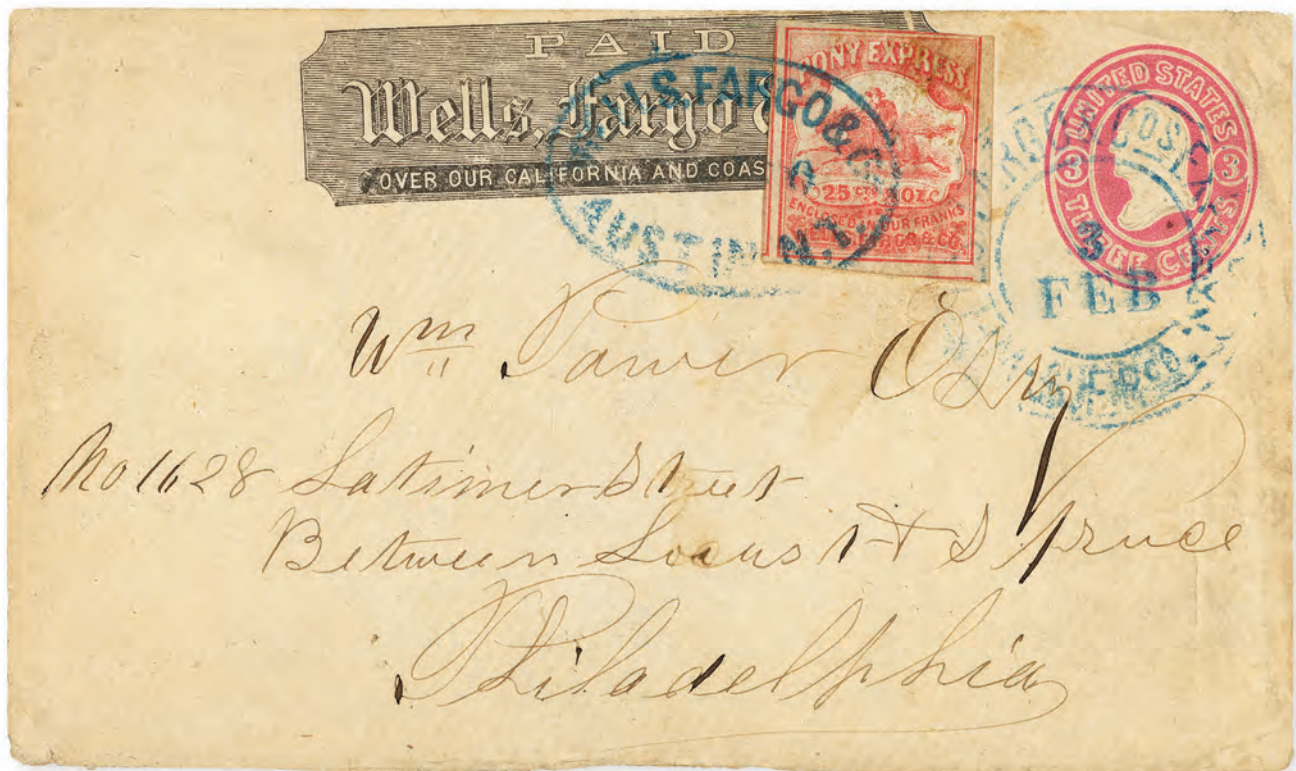 PAID
Wells, Fargo &
OVER OUR CALIFORNIA AND COAS
WELLS, FARGO & CO.
AUSTIN N.T.
PONY EXPRESS.
25 Cts ½ OZ.
ENCLOSED IN OUR FRANKS
UNITED STATES
3 3
THREE CENTS
5
FEB
Wm Power Esq
No 1628 Latimer Street
Between Locust & Spruce
Philadelphia